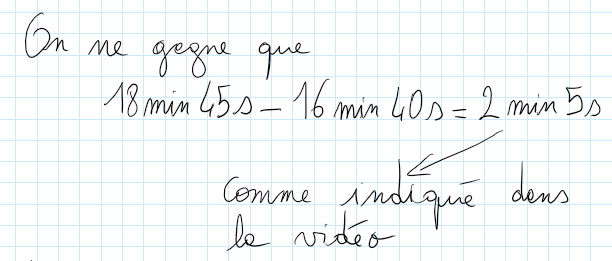 On ne gagne que
18 min 45 s - 16 min 40 s = 2 min 5 s
comme indiqué dans
la vidéo